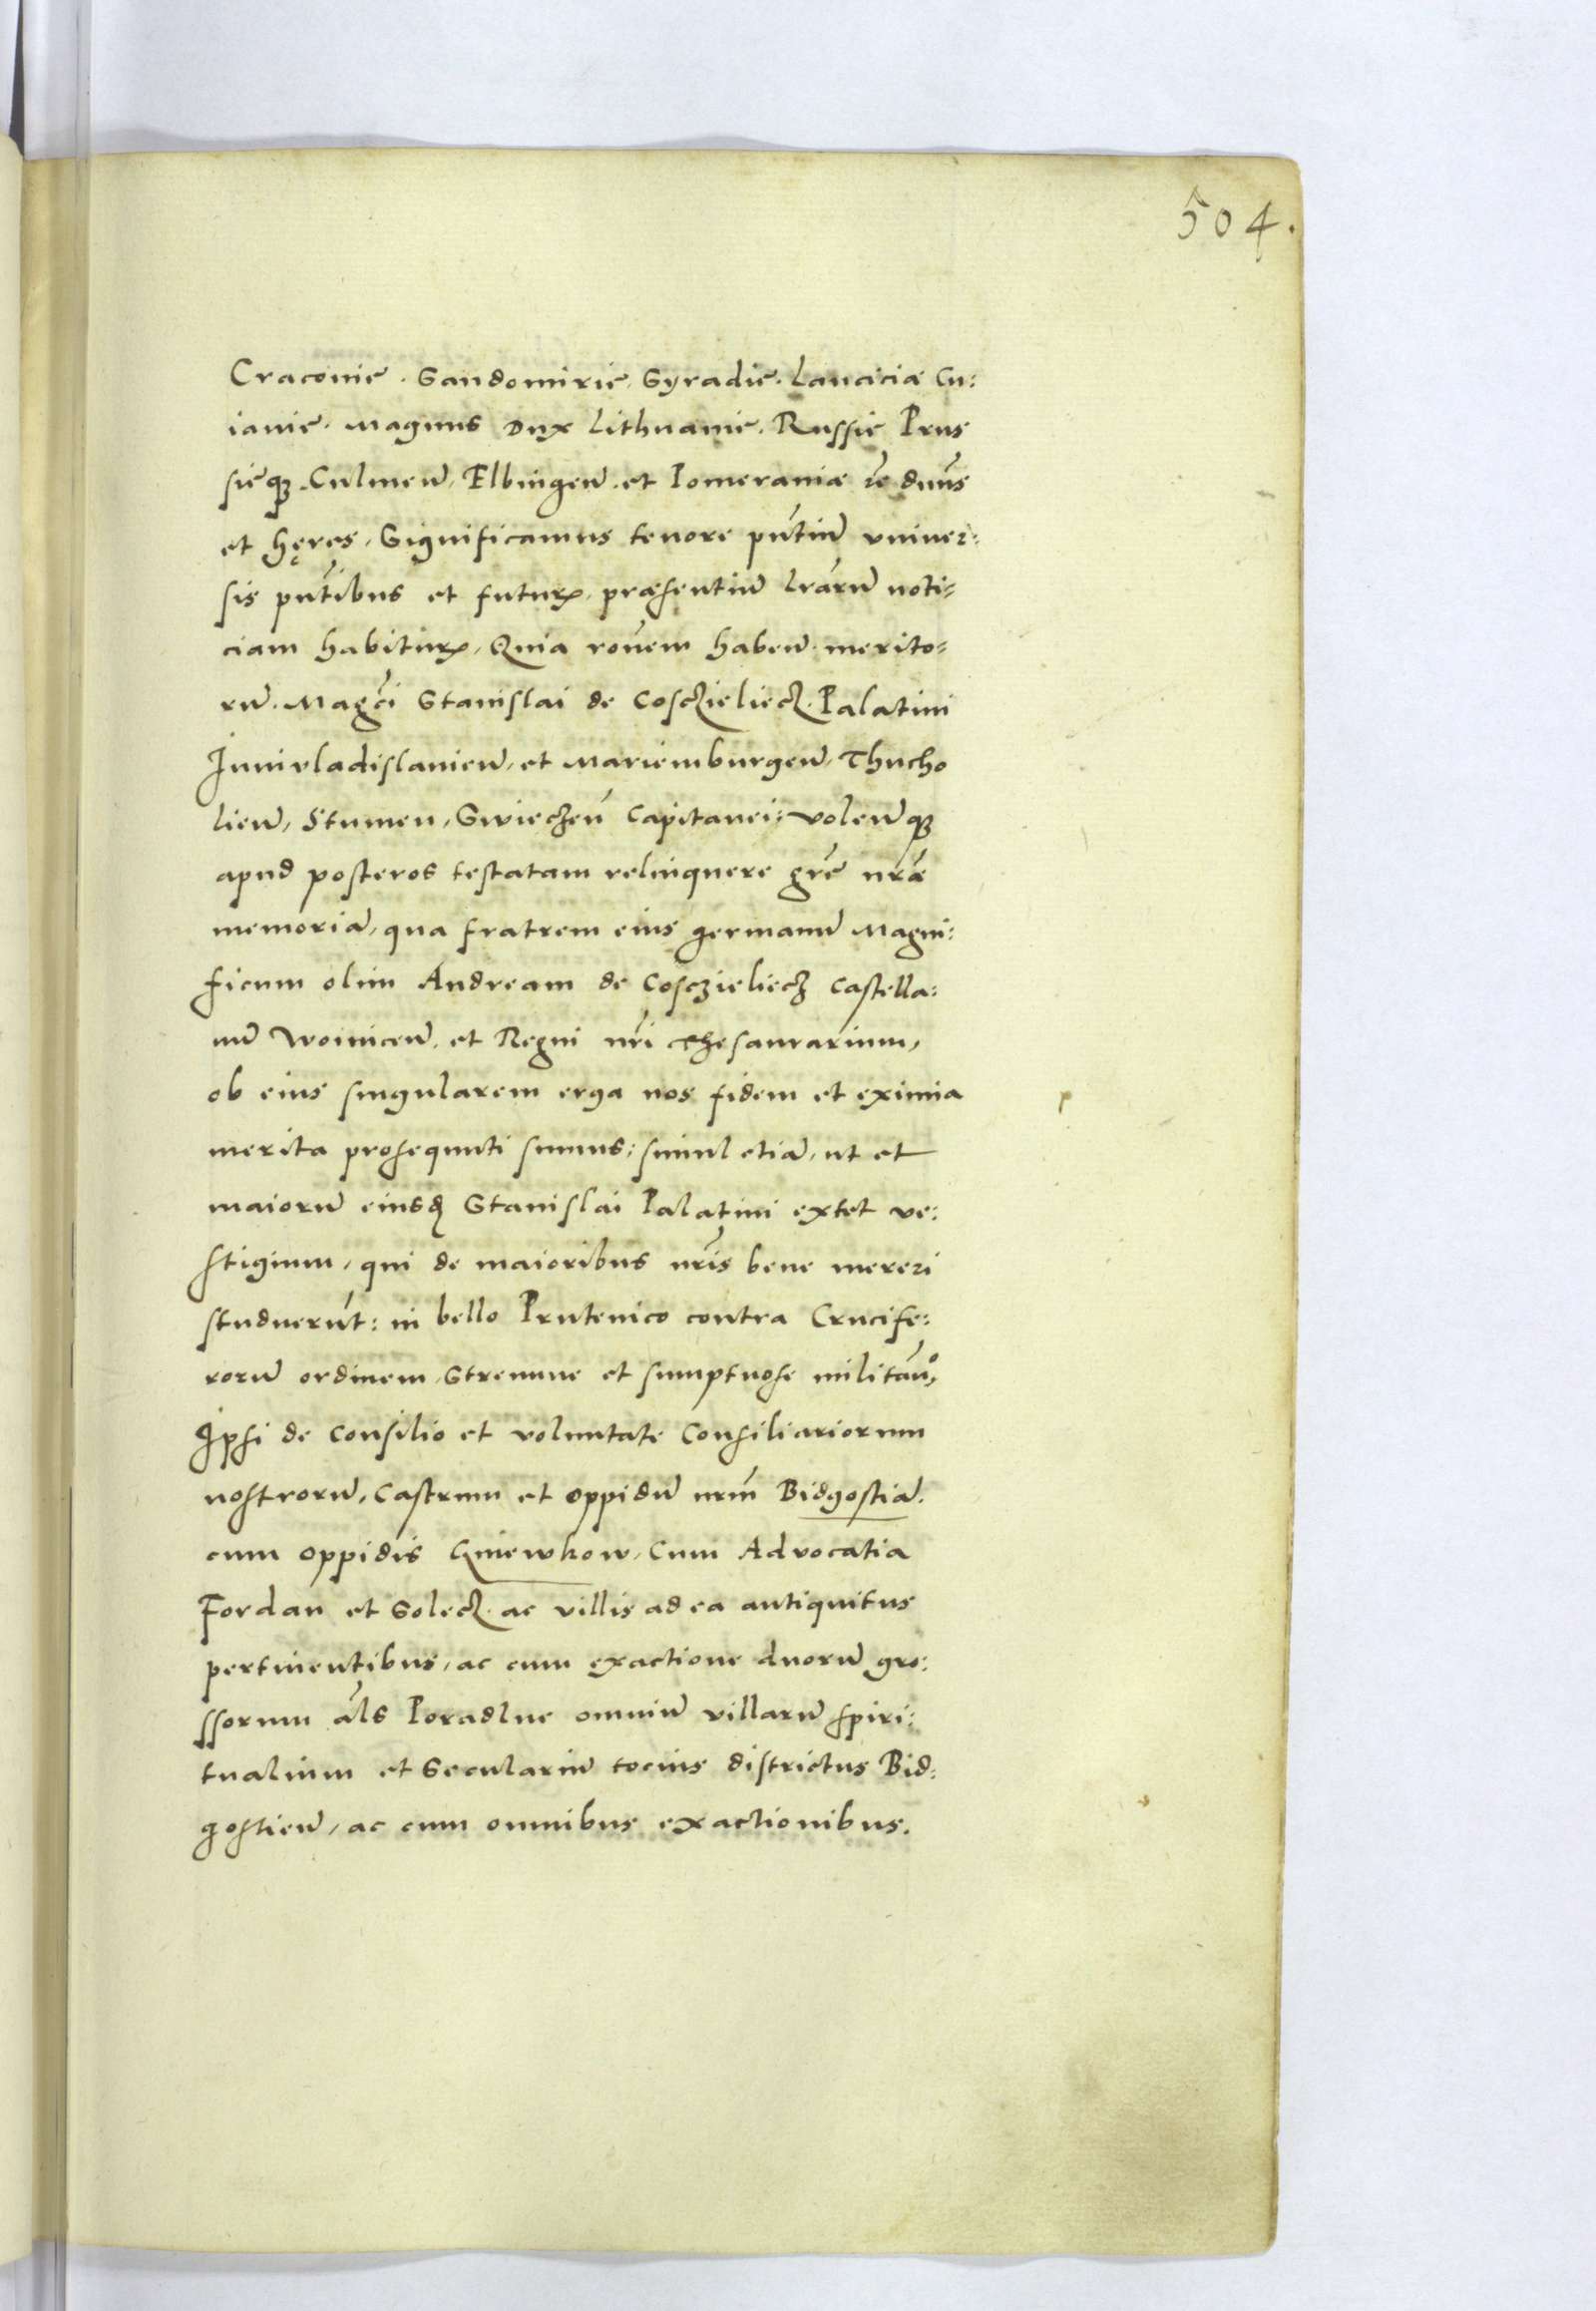 504.
Craconie. Sandomirie, Syradie. Lanciciæ Cu:
iauie. Magnus Dux Lithuanie. Russie Prus
sieq3. Culmeñ, Elbingeñ. et Pomeraniæ rē dnūs
et hęres, Significamus tenore pntiū vniuer:
sis pntibus et futuꝝ, præsentiū lrarū noti-
ciam habituꝝ, Quia ronem habeñ merito-
rū. Magci Stanislai de Cosczieliecz. Palatini
Iunivladislauieñ, et Mariemburgeñ, Thucho
lieñ, Stumeñ, Swiecheñ Capitanei: voleñ q3
apud posteros testatam relinquere grē nræ
memoriā, qua fratrem eius germanū Magni:
ficum olim Andream de Cosczieliecz Castella:
nū Woiniceñ, et Regni nri Thesaurarium,
ob eius singularem erga nos fidem et eximia
merita prosequuti sumus: simul etiā, ut et
maiorū eiusdꝫ Stanislai Palatini extet ve:
stigium, qui de maioribus nris bene mereri
studuerūt: in bello Prutenico contra Crucife:
rorū ordinem, Strenuue et sumptuose militañ,
Ipsi de consilio et voluntate Consiliariorum
nostrorū, Castrum et oppidū nrm Bidgostiā.
cum oppidis Gniewkow, Cum Advocatia
Fordan et Solecz. ac villis ad ea antiquitus
pertinentibus, ac cum exactione duorū gro:
ssorum als Poradlne omniū villarū spiri:
tualium et Seculariū tocius districtus Bid:
gostieñ, ac cum omnibus exactionibus.